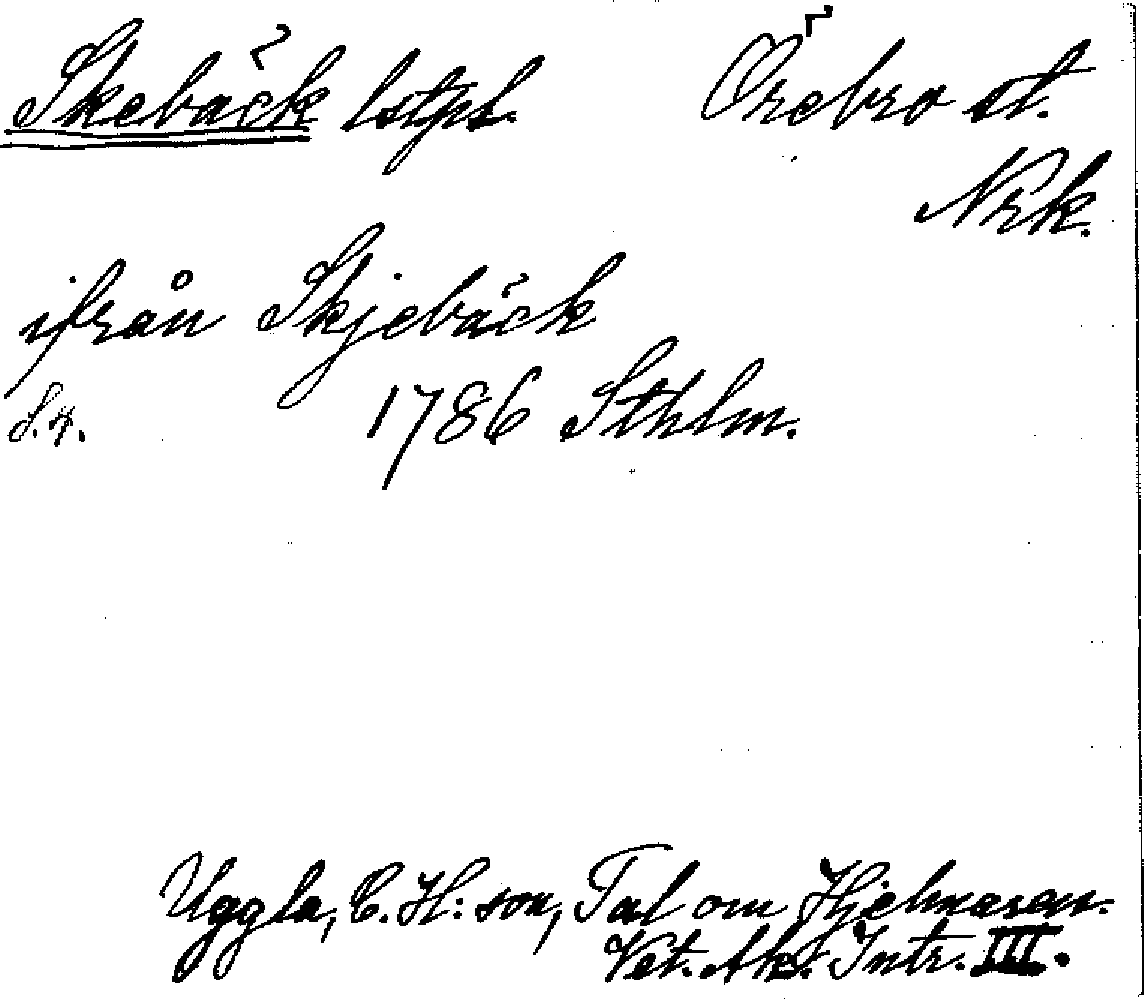 Skebäck lstpl. Örebro st.
Nrk.
ifrån Skjebäck
S. 4. 1786 Sthlm.
Uggla, C. H:son, Tal om Hjelmaren.
Vet. Ak. Intr. III.